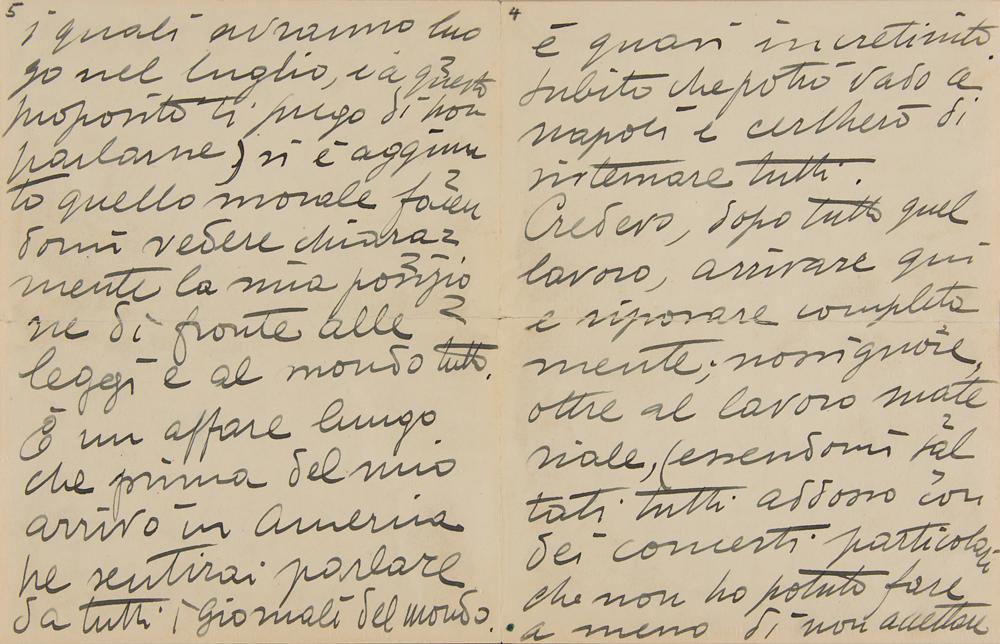 4
è quasi incretinito
subito che potrò vado a
napoli e cercherò di
sistemare tutti.
Credevo, dopo tutto quel
lavoro, arrivare qui
e riposare completa
mente; nossignore,
oltre al lavoro mate
riale, (essendomi sal
tati tutti addosso con
dei concerti particolari
che non ho potuto fare
a meno di non accettare
5
i quali avranno luo
go nel luglio, e a questo
proposito ti prego di non
parlarne) si è aggiun
to quello morale facen
domi vedere chiara=
mente la mia posizio
ne di fronte alle =
leggi e al mondo tutto.
È un affare lungo
che prima del mio
arrivo in America
ne sentirai parlare
da tutti i giornali del mondo.